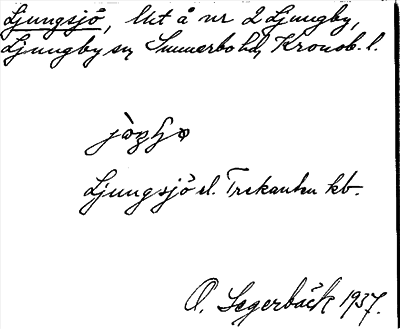 Ljungsjö, litt å nr 2 Ljungby,
Ljungby sn, Sunnerbo hd, Kronob. l.
Ljungsjö el. Trekanten kb.
O. Segerbäck 1937.